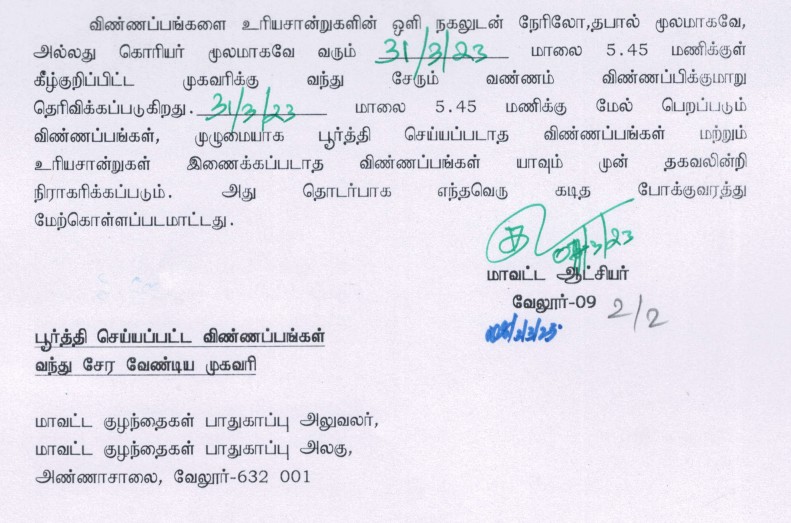 விண்ணப்பங்களை உரியசான்றுகளின் ஒளி நகலுடன் நேரிலோ,தபால் மூலமாகவே,
அல்லது கொரியர் மூலமாகவே வரும் 31/3/23 மாலை 5.45 மணிக்குள்
கீழ்குறிப்பிட்ட முகவரிக்கு வந்து சேரும் வண்ணம் விண்ணப்பிக்குமாறு
தெரிவிக்கப்படுகிறது. 31/3/23 மாலை 5.45 மணிக்கு மேல் பெறப்படும்
விண்ணப்பங்கள், முழுமையாக பூர்த்தி செய்யப்படாத விண்ணப்பங்கள் மற்றும்
உரியசான்றுகள் இணைக்கப்படாத விண்ணப்பங்கள் யாவும் முன் தகவலின்றி
நிராகரிக்கப்படும். அது தொடர்பாக எந்தவெரு கடித போக்குவரத்து
மேற்கொள்ளப்படமாட்டது.
மாவட்ட ஆட்சியர்
வேலூர்-09
2/2
பூர்த்தி செய்யப்பட்ட விண்ணப்பங்கள்
வந்து சேர வேண்டிய முகவரி
மாவட்ட குழந்தைகள் பாதுகாப்பு அலுவலர்,
மாவட்ட குழந்தைகள் பாதுகாப்பு அலகு,
அண்ணாசாலை, வேலூர்-632 001